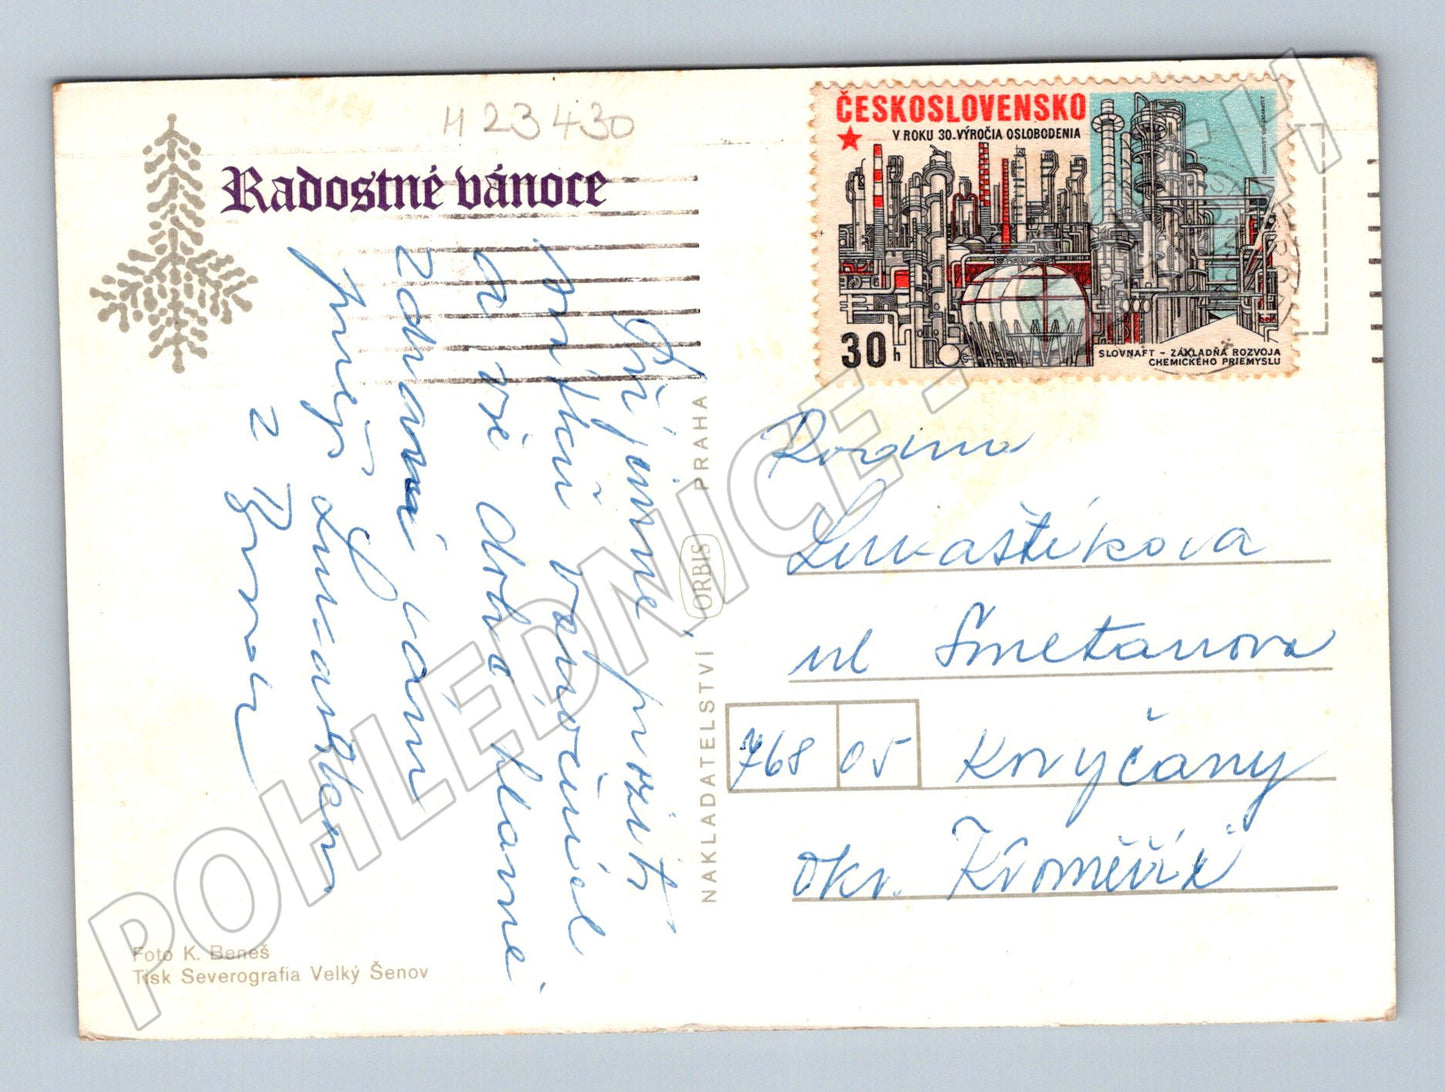 H 23430
Radostné vánoce
ČESKOSLOVENSKO
V ROKU 30. VÝROČIA OSLOBODENIA
30 h
SLOVNAFT - ZÁKLADŇA ROZVOJA
CHEMICKÉHO PRIEMYSLU
Příjemné prožití
svátků Vánočních
a vše dobré hlavně
zdraví Vám
přejí
z
Rodina
Lukaštíkova
ul Smetanova
768 05 Koryčany
okr. Kroměříž
NAKLADATELSTVÍ ORBIS PRAHA
Foto K. Beneš
Tisk Severografia Velký Šenov